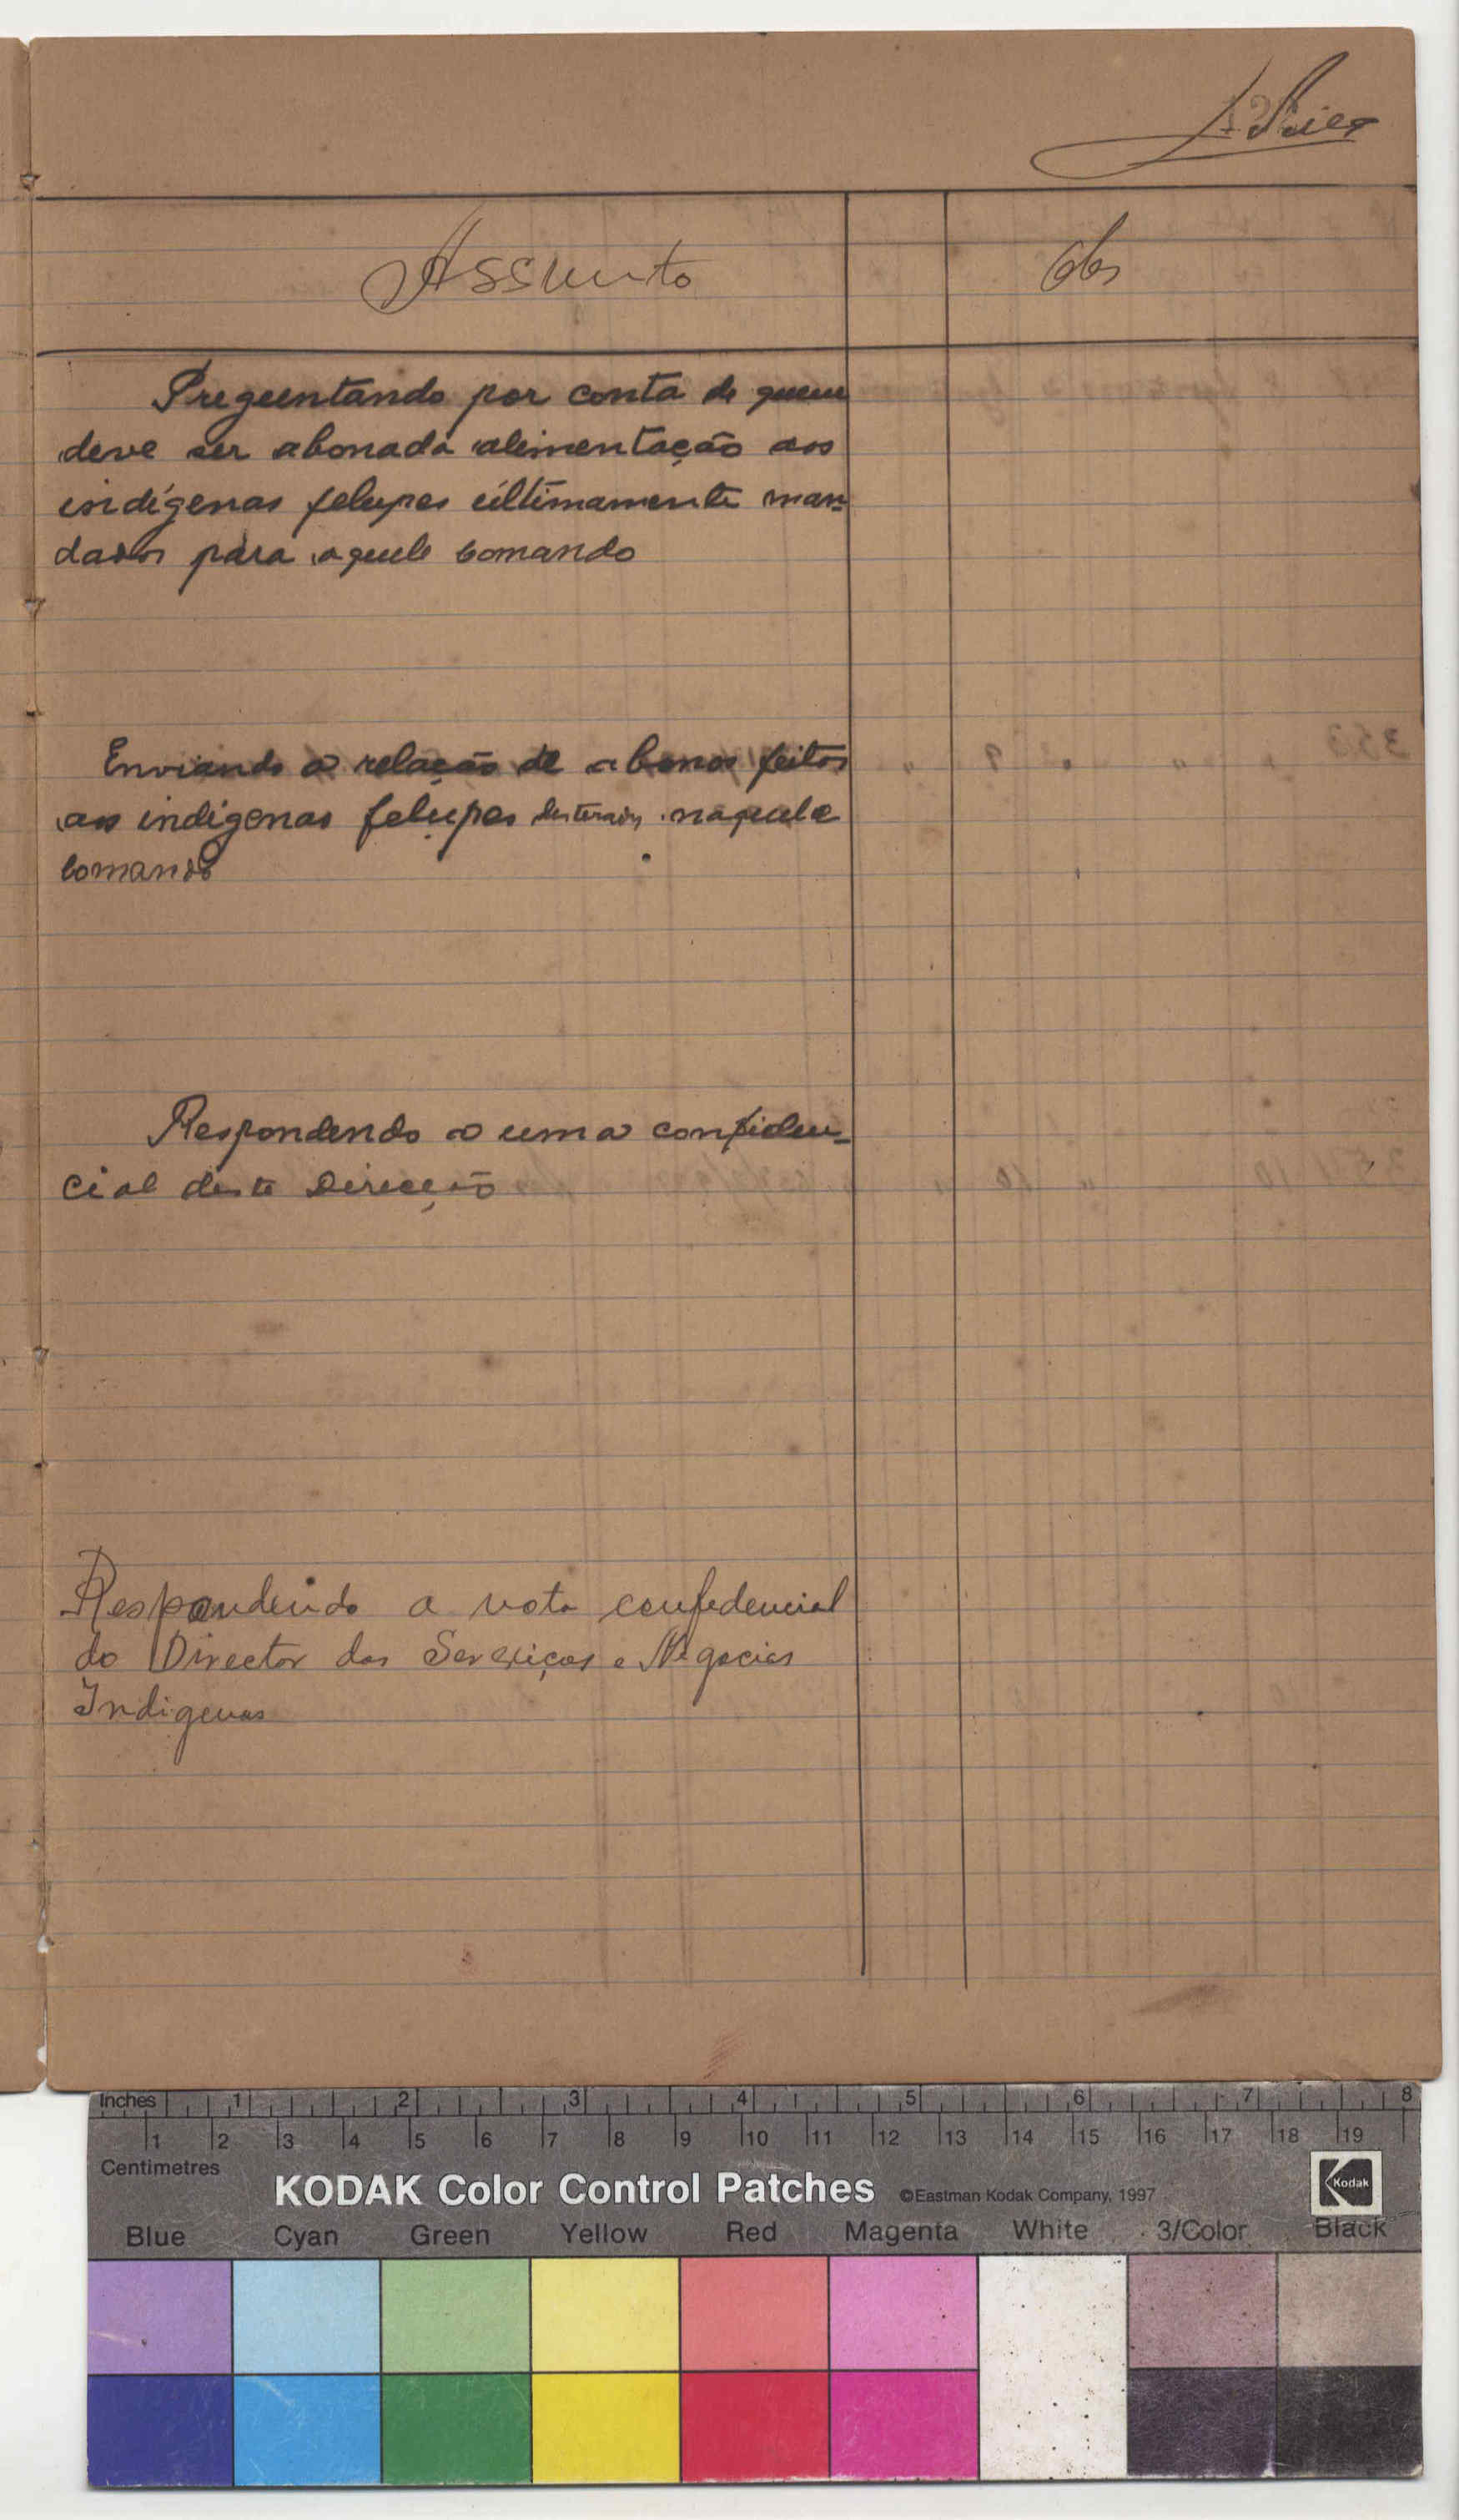 Assunto
Obs
Preguntando por conta de quem
deve ser abonada alimentação aos
indígenas felupes últimamente man-
dados para aquele comando
Enviando a relação de abonos feitos
aos indigenas felupes desterrados naquele
comando
Respondendo a uma confiden-
cial desta Direcção
Respondendo a nota confedencial
do Director dos Serviços e Negocios
Indigenas
Inches 1 2 3 4 5 6 7 8
1 2 3 4 5 6 7 8 9 10 11 12 13 14 15 16 17 18 19
Centimetres
KODAK Color Control Patches ©Eastman Kodak Company, 1997 Kodak
Blue Cyan Green Yellow Red Magenta White 3/Color Black